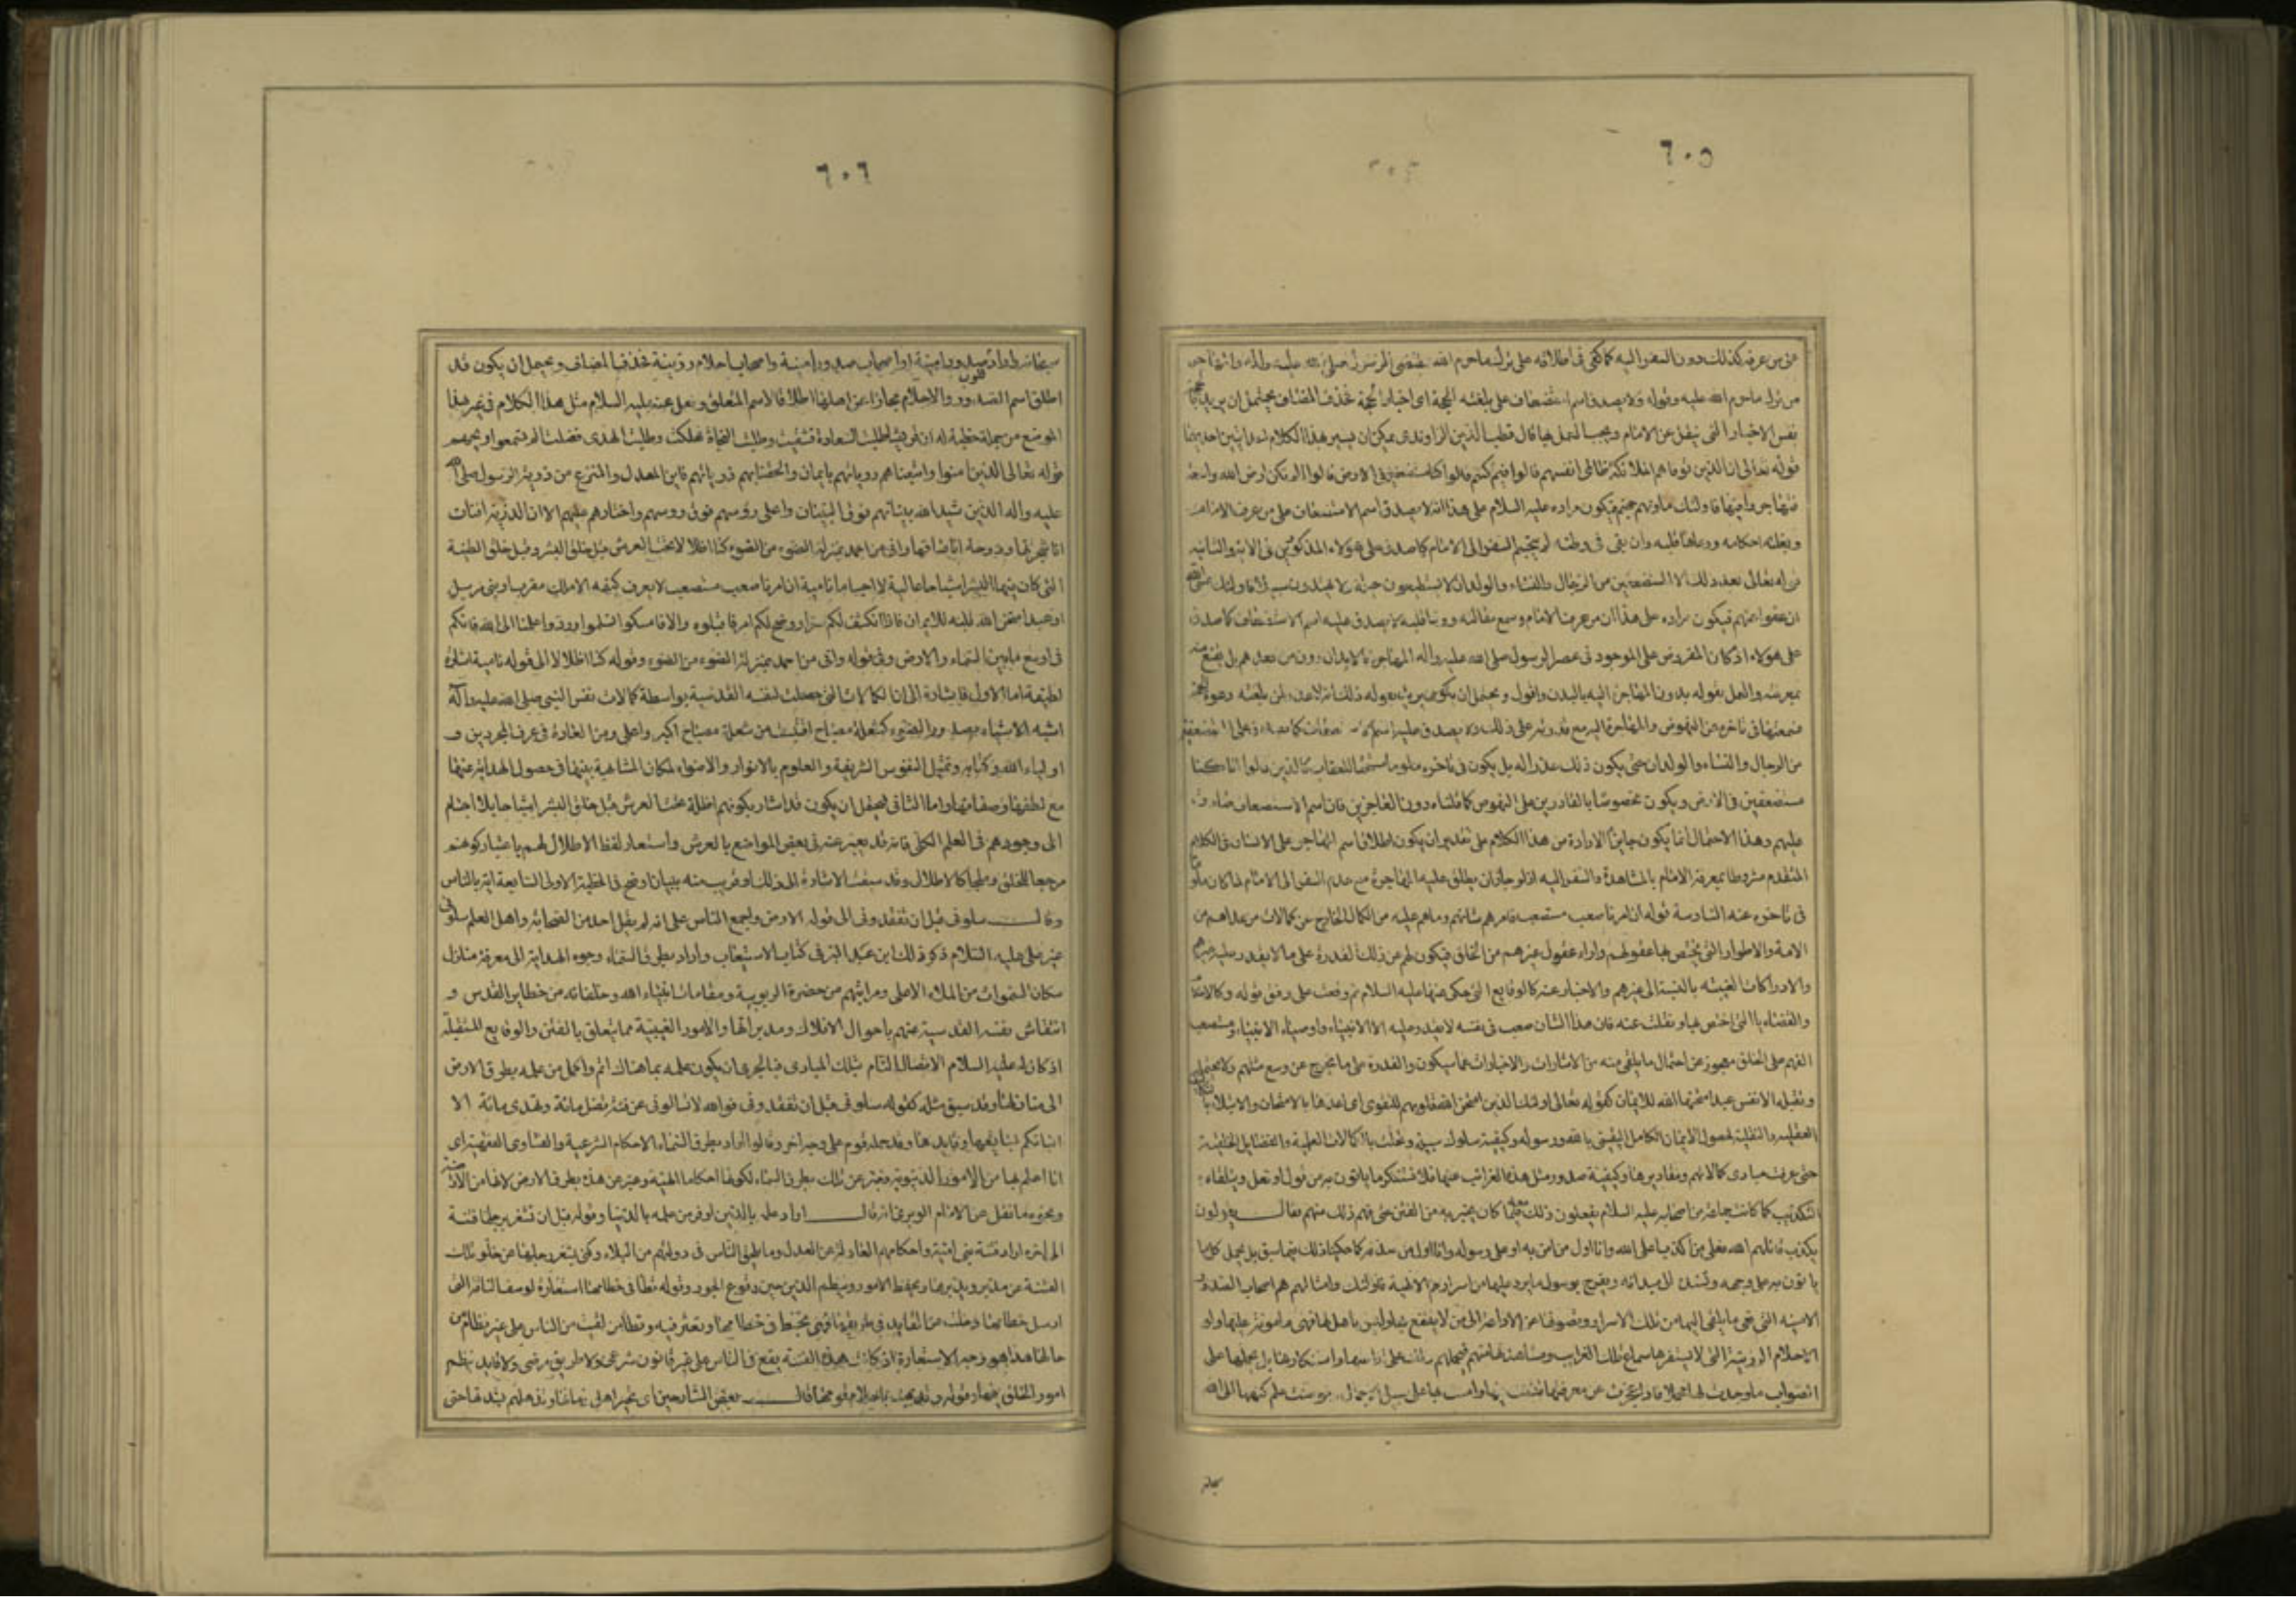 ٦٠٥
من عرفه كذلك دون السفر اليه كما كفى فى اطلاقه على ترك ما حرم الله
من ترك ما حرم الله عليه وقوله ولا يصدق اسم الاستضعاف على من بلغته الحجة اى اخبار الحجة فحذف المضاف ويحتمل ان يريد
نفس الاخبار التى تنقل عن الامام ويجب العمل بها قال قطب الدين الراوندى يمكن ان يشير بهذا الكلام الى احد
قوله تعالى ان الذين توفاهم الملائكة ظالمى انفسهم قالوا فيم كنتم قالوا كنا مستضعفين فى الارض قالوا الم تكن ارض الله واسعة
فتهاجروا فيها فاولئك ماويهم جهنم فيكون مراده عليه السلام على هذا انه لا يصدق اسم الاستضعاف على من عرف الامام
وبلغته احكامه ووعاها قلبه وان بقى فى وطنه لم يتجشم السفر الى الامام كما صدق على هؤلاء المذكورين فى الاية والثانية
قوله تعالى بعد ذلك الا المستضعفين من الرجال والنساء والولدان لا يستطيعون حيلة ولا يهتدون سبيلا فاولئك عسى الله
ان يعفو عنهم فيكون مراده على هذا ان من عرف الامام وسمع مقالته ووعاها قلبه لا يصدق عليه اسم الاستضعاف كما صدق
على هؤلاء اذ كان المفروض على الموجود فى عصر الرسول صلى الله عليه واله المهاجرة بالابدان دون من بعدهم بل يقنع منه
بمعرفته والعمل بقوله بدون المهاجرة اليه بالبدن واقول ويحتمل ان يكون يريد بقوله ذلك انه لا عذر لمن بلغته دعوة الحجة
فسمعها فى تاخره عن النهوض والمهاجرة اليه مع قدرته على ذلك ولا يصدق عليه اسم الاستضعاف كما يصدق على المستضعفين
من الرجال والنساء والولدان حتى يكون ذلك عذرا له بل يكون فى تاخره ملوما مستحقا للعقاب كالذين قالوا انا كنا
مستضعفين فى الارض ويكون مخصوصا بالقادرين على النهوض كما قلناه دون العاجزين فان اسم الاستضعاف صادق
عليهم وهذا الاحتمال انما يكون جايز الارادة من هذا الكلام على تقدير ان يكون اطلاق اسم المهاجر على الانسان فى الكلام
المتقدم مشروطا بمعرفة الامام بالمشاهدة والسفر اليه اذ لو جاز ان يطلق عليه المهاجرة مع عدم السفر الى الامام لما كان ملوما
فى تاخره عنه السادسة قوله ان امرنا صعب مستصعب فامرهم شانهم وما هم عليه من الكمال الخارج عن كمالات من عداهم من
الامة والاطوار التى يختص بها عقولهم وراء عقول غيرهم من الخلق فيكون لهم عن ذلك القدرة على ما لا يقدر عليه غيرهم
والادراكات الغيبية بالنسبة الى غيرهم والاخبار عنه كالوقايع التى حكى عنها عليه السلام ثم وقعت على وفق قوله
التى اختص بها ونقلت عنه فان هذا الشان صعب فى نفسه لا يقدر عليه الا الانبياء واوصياء الانبياء ومستصعب
الفهم على الخلق معجوز عن احتمال ما يلقى منه من الاشارات والاخبارات عما سيكون والقدرة على ما يخرج عن وسع مثلهم
الانفس عبد امتحنها الله للايمان كقوله تعالى اولئك الذين امتحن الله قلوبهم للتقوى اى اعدها بالامتحان والابتلاء
العقلية والنقلية لحصول الايمان الكامل اليقينى بالله ورسوله وكيفية سلوك سبيله وتحلت بالكمالات العلمية والفضايل الخلقية
حتى عرفت مبادى كمالاتهم ومقاديرها وكيفية صدور مثل هذه الغرائب عنها فلا تستنكر ما ياتون به من قول او فعل ويتلقاه
بالتكذيب كما كانت جماعة من اصحابه عليه السلام يفعلون ذلك معه فيما كان يخبر به من الفتن حتى فهم ذلك منهم فقال يقولون
يكذب قاتلهم الله فعلى من اكذب اعلى الله وانا اول من امن به او على رسوله وانا اول من صدقه كما حكيناه ذلك فيما سبق بل يحمل كل ما
ياتون به على وجهه
الامينه التى تعى ما يلقى اليها من تلك الاسرار وتصونها عن الاذاعة الى من لا ينتفع بها وليس باهل لها فهى مامونة عليها واولو
الاحلام الرزينة التى لا يستفزها سماع تلك الغرايب
الصواب ما وجدت لها محملا فان عجزت عن معرفتها امنت بها على سبيل الاجمال علم كنهها الى الله
٦٠٦
سبحانه واراد صدور امينة او اصحاب صدور امينة واصحاب احلام رزينة فحذف المضاف ويحتمل ان يكون قد
اطلق اسم الصدور والاحلام مجازا عن اهلها اطلاقا لاسم المتعلق ونقل عنه عليه السلام مثل هذا الكلام فى غير هذا
الموضع من جملة خطبة له ان قريشا طلبت السعادة فشقيت وطلبت النجاة فهلكت وطلبت الهدى فضلت الم يسمعوا ويحهم
قوله تعالى الذين امنوا واتبعناهم ذرياتهم بايمان والحقنا بهم ذرياتهم فاين المعدل والمنزع عن ذرية الرسول صلى الله
عليه واله الذين شيد الله بنيانهم فوق البنيان واعلى رؤسهم فوق رؤسهم واختارهم عليهم الا ان الذرية افنان
انا شجرتها ودوحة انا ساقها وانى من احمد بمنزلة الضوء من الضوء كنا اظلالا تحت العرش قبل خلق البشر وقبل خلق الطينة
التى كان منها البشر اشباحا عالية لا اجساما نامية ان امرنا صعب مستصعب لا يعرف كنهه الا ملك مقرب او نبى مرسل
او عبد امتحن الله قلبه للايمان فاذا انكشف لكم سر او وضح لكم امر فاقبلوه والا فامسكوا تسلموا وردوا علمنا الى الله فانكم
فى اوسع ما بين السماء والارض وفى قوله وانى من احمد بمنزلة الضوء من الضوء وقوله كنا اظلالا الى قوله نامية اشارة
لطيفة اما الاول فاشارة الى ان الكمالات التى حصلت لنفسه القدسية بواسطة كمالات نفس النبى صلى الله عليه واله
اشبه الاشياء بصدور الضوء كشعلة مصباح اقتبست من شعلة مصباح اكبر واعلى ومن العادة فى عرف المجردين و
اولياء الله وكتابه وتمثيل النفوس الشريفة والعلوم بالانوار والاضواء لمكان المشابهة بينهما فى حصول الهداية عنها
مع لطفها وصفائها واما الثانى فيحتمل ان يكون قد اشار بكونهم اظلة تحت العرش قبل خلق البشر اشباحا بلا اجسام
الى وجودهم فى العلم الكلى فانه قد يعبر عنه فى بعض المواضع بالعرش واستعار لفظ الاظلال لهم باعتبار كونهم
مرجعا للخلق وملجأ كالاظلال وقد سبقت الاشارة الى ذلك او قريب منه ببيان اوضح فى الخطبة الاولى السابعة اية بالناس
وقال سلونى قبل ان تفقدونى الى قوله الارض واجمع الناس على انه لم يقل احد من الصحابة واهل العلم سلونى
غير على عليه السلام ذكر ذلك ابن عبد البر فى كتاب الاستيعاب واراد بطرق السماء وجوه الهداية الى معرفة منازل
سكان السموات من الملاء الاعلى ومراتبهم من حضرة الربوبية ومقامات انبياء الله وخلفائه من حظاير القدس و
انتقاش نفسه القدسية عنهم باحوال الافلاك ومدبراتها والامور الغيبية مما يتعلق بالفتن والوقايع المستقبلة
اذ كان له عليه السلام الاتصال التام بتلك المبادى فبالحرى ان يكون علمه بما هناك اتم واكمل من علمه بطرق الارض
الى منازلها وقد سبق مثله كقوله سلونى قبل ان تفقدونى فوالله لا تسالونى عن فئة تضل مائة وتهدى مائة الا
انباتكم بناعقها وقايدها وقد حمله قوم على وجه اخر وقالوا اراد بطرق السماء الاحكام الشرعية والفتاوى الفقهية اى
انا اعلم بها من الامور الدنيوية فعبر عن تلك بطرق السماء لكونها احكاما الهية وعبر عن هذه بطرق الارض لانها من الامور الارضية
ونحوه ما نقل عن الامام الوبرى انه قال اراد علمه بالدين اوفر من علمه بالدنيا وقوله قبل ان تشغر برجلها فتنة
الى اخره اراد فتنة بنى امية واحكامهم العادلة عن العدل وما يلقى الناس فى دولتهم من البلاء وكنى بشغر رجلها عن خلو تلك
الفتنة عن مدبر يدبرها ويحفظ الامور وينظم الدين حين وقوع الجور وقوله تطأ فى خطامها استعارة لوصف الناقة التى
ارسل خطامها وخلت عن القايد فى طريقها فهى تخبط فى خطامها وتعثر فيه وتطأ من لقيت من الناس على غير نظام من
حالها هذا هو وجه الاستعارة اذ كانت هذه الفتنة يقع فى الناس على غير قانون شرعى ولا طريق مرضى ولا قايد ينظم
امور الخلق فيها وقوله وتذهب باحلام قومها قال بعض الشارحين اى يتحير اهل زمانها ويذهلهم بشدتها حتى